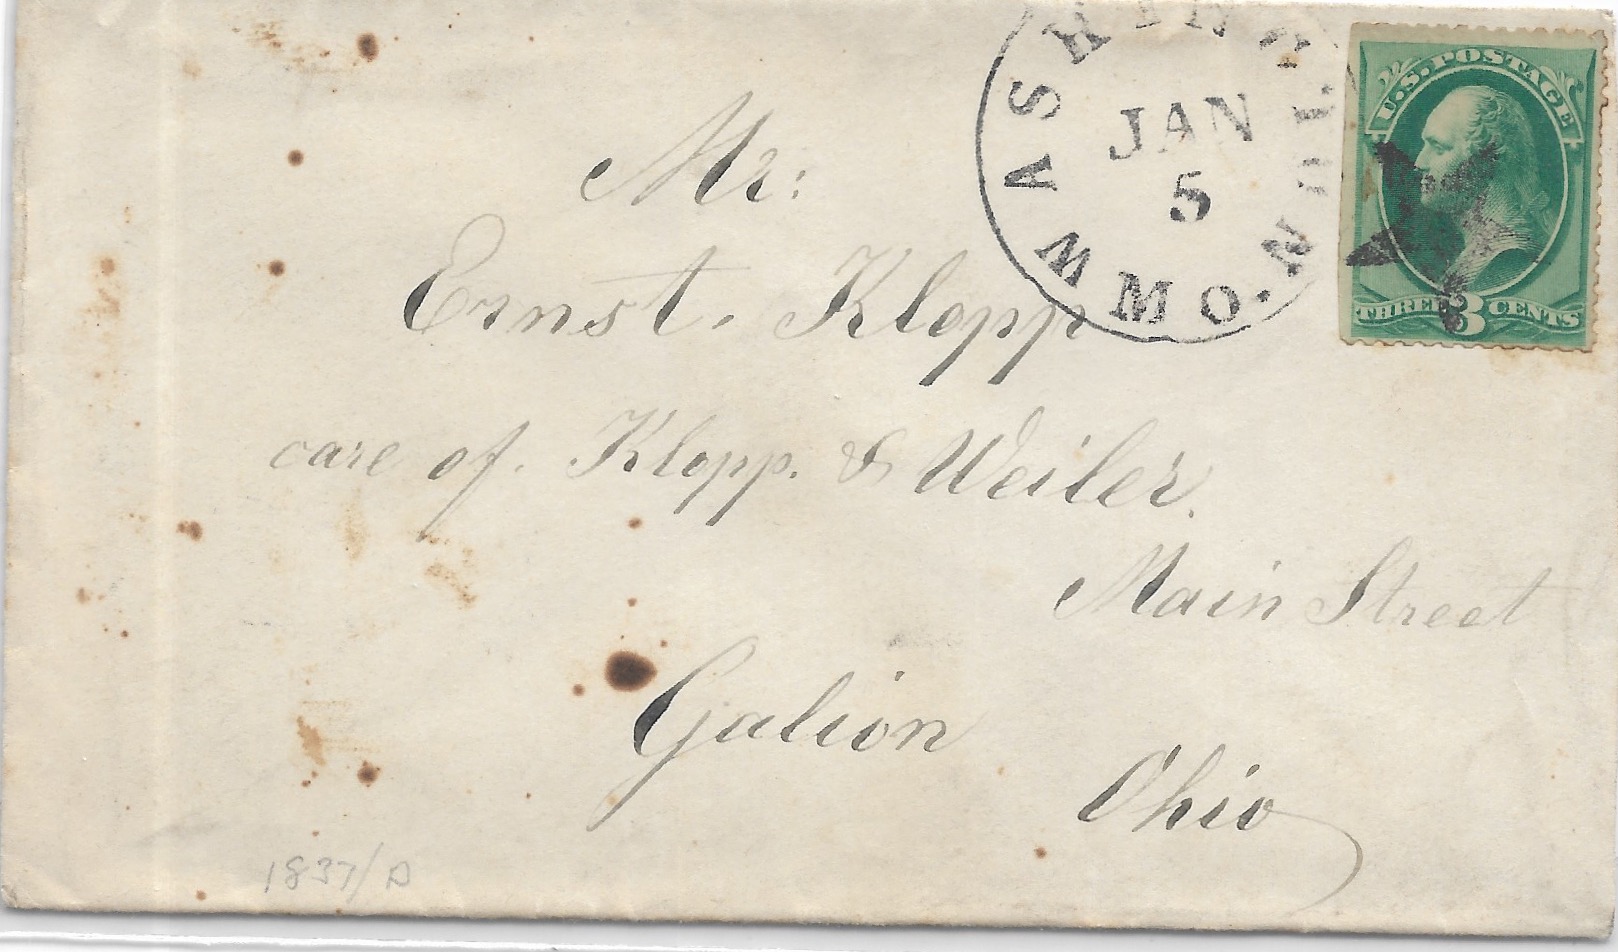 WASHINGTON.
MO.
JAN
5
U.S. POSTAGE
THREE 3 CENTS
Mr:
Ernst. Klopp
care of. Klopp. & Weiler.
Main Street
Galion
Ohio
1837/D